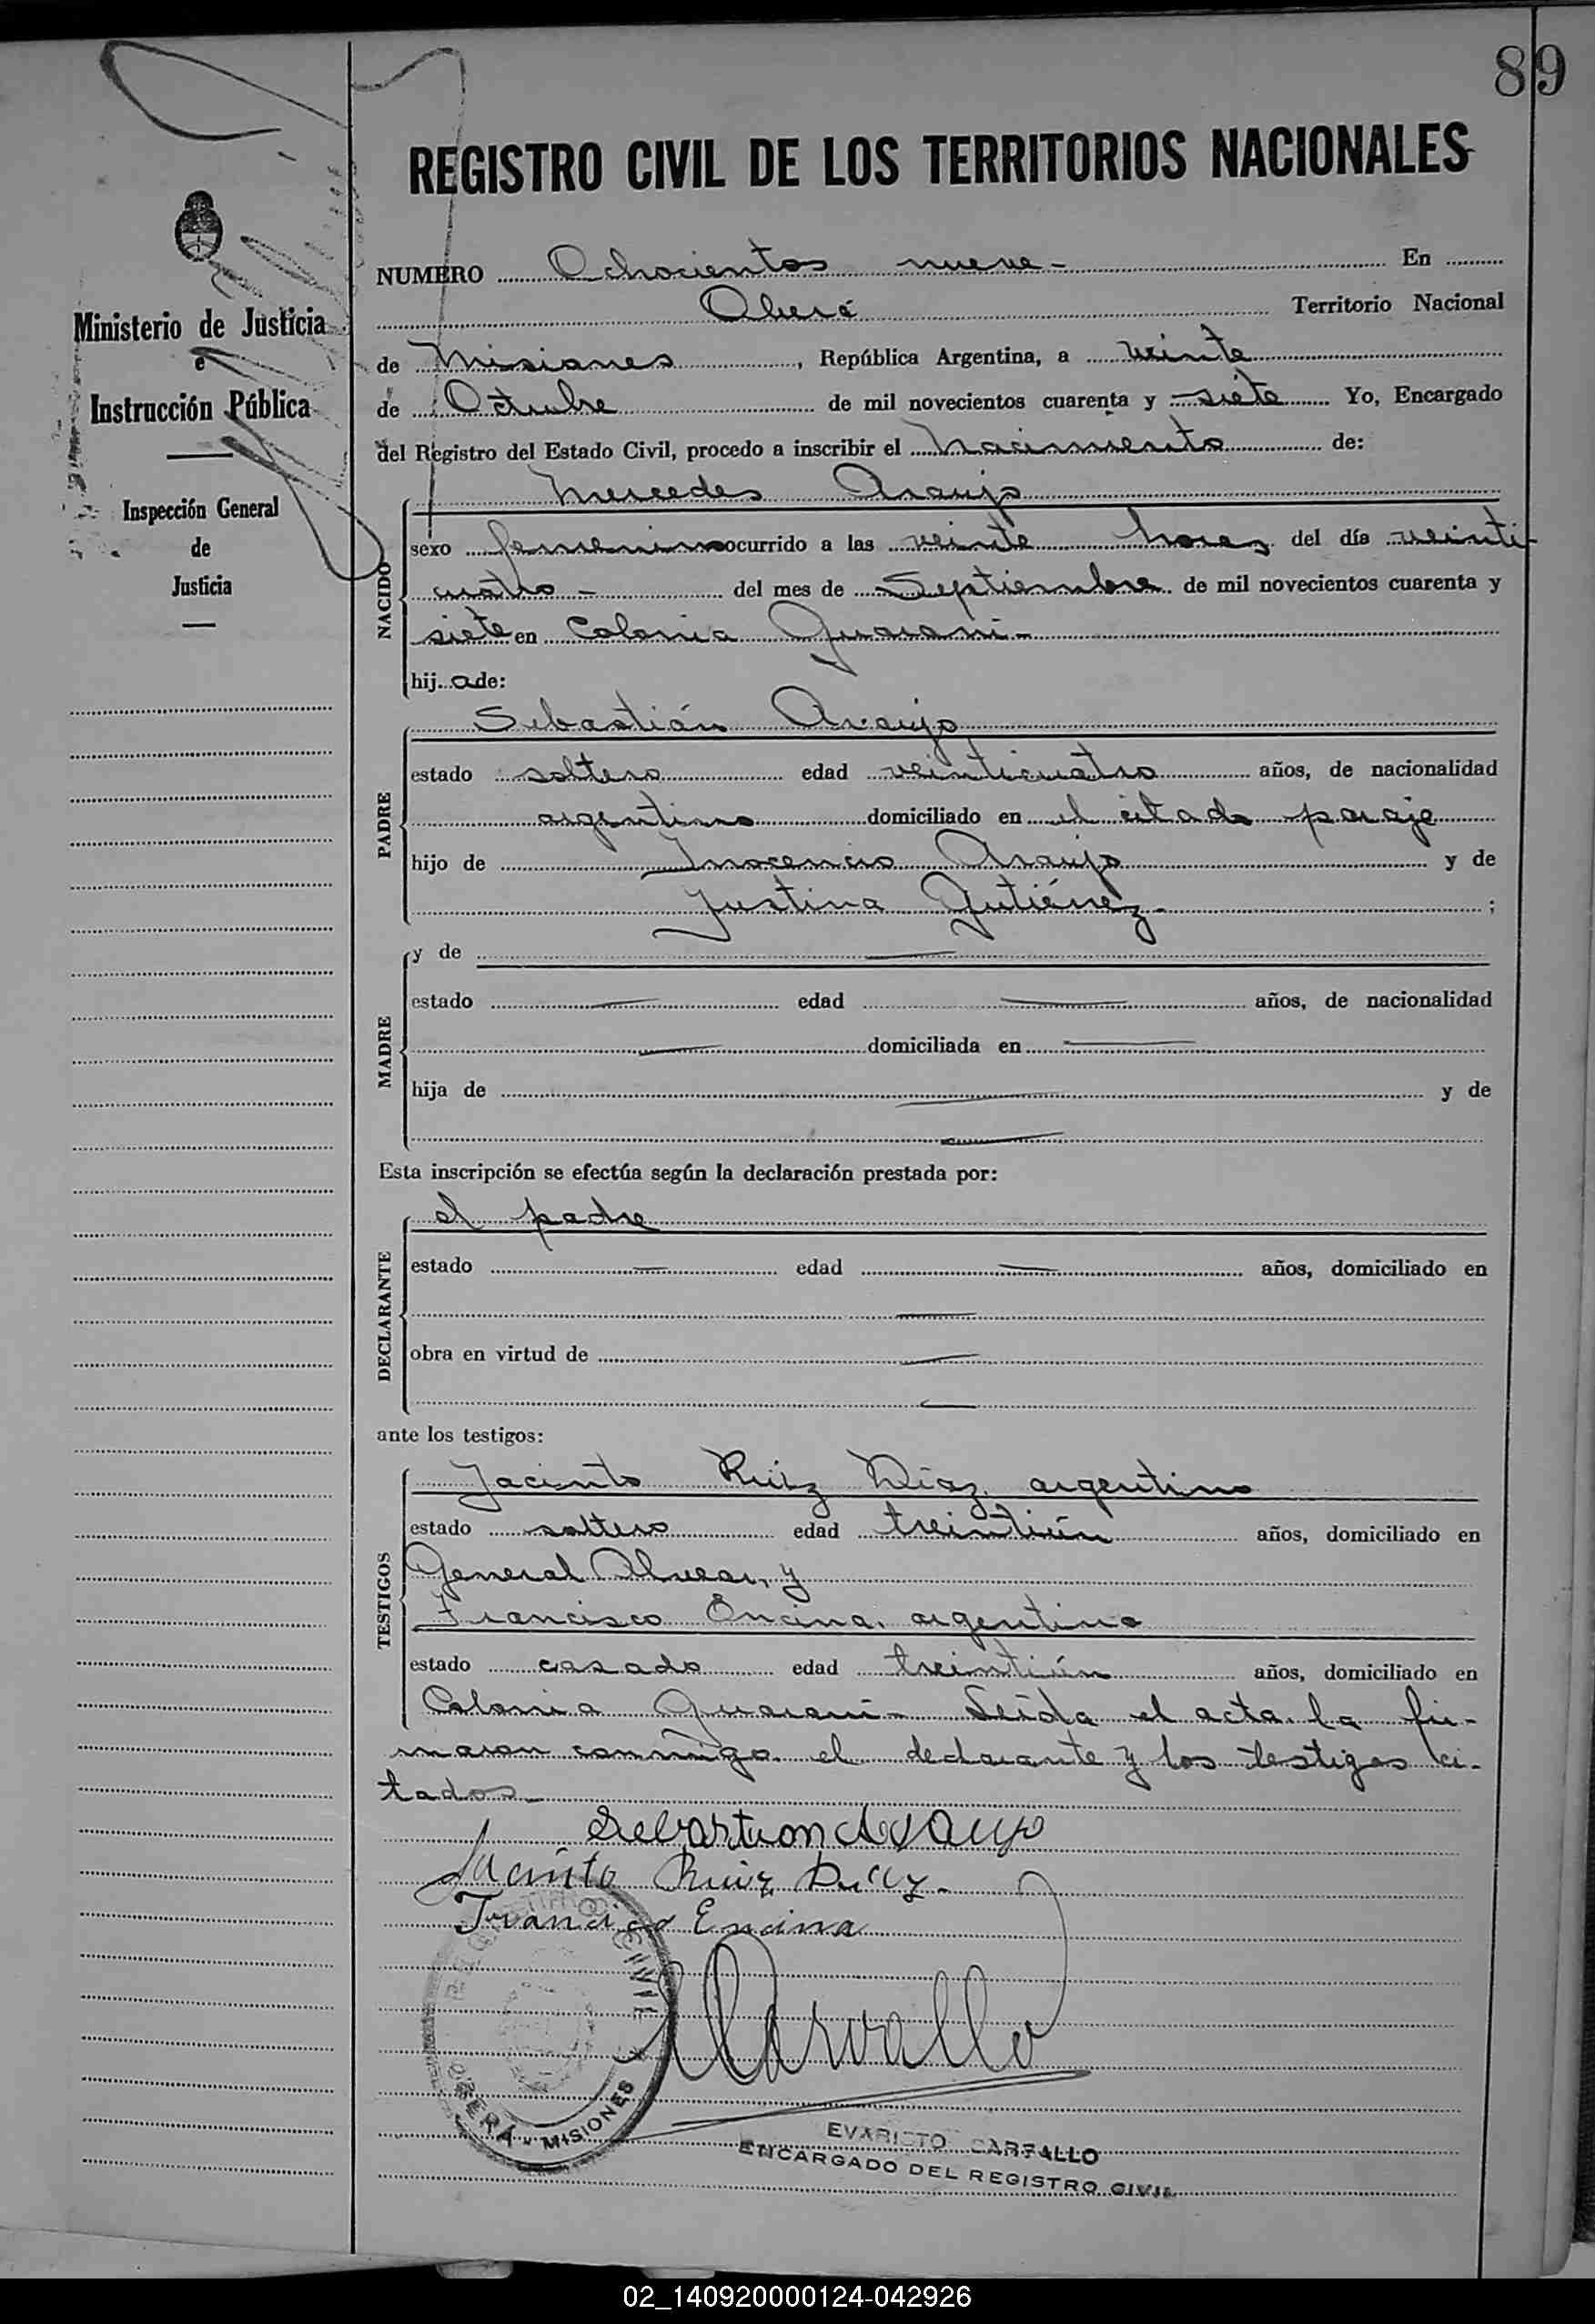 89
REGISTRO CIVIL DE LOS TERRITORIOS NACIONALES
Ministerio de Justicia
e
Instrucción Pública
Inspección General
de
Justicia
NUMERO Ochocientos nueve - En
Oberá Territorio Nacional
de Misiones, República Argentina, a veinte
de Octubre de mil novecientos cuarenta y siete Yo, Encargado
del Registro del Estado Civil, procedo a inscribir el nacimiento de:
NACIDO
Mercedes Araujo
sexo femenino ocurrido a las veinte horas del día veinti
cuatro - del mes de Septiembre de mil novecientos cuarenta y
siete en Colonia Guaraní -
hij a de:
PADRE
Sebastián Araujo
estado soltero edad veinticuatro años, de nacionalidad
argentino domiciliado en el citado paraje
hijo de Inocencio Araujo y de
Justina Gutiérrez - ;
MADRE
y de —
estado — edad — años, de nacionalidad
— domiciliada en —
hija de — y de
—
Esta inscripción se efectúa según la declaración prestada por:
DECLARANTE
el padre
estado — edad — años, domiciliado en
—
obra en virtud de —
—
ante los testigos:
TESTIGOS
Jacinto Ruiz Díaz, argentino
estado soltero edad treintiún años, domiciliado en
General Alvear, y
Francisco Encina, argentino
estado casado edad treintiún años, domiciliado en
Colonia Guaraní - Leída el acta, la fir-
maron conmigo el declarante y los testigos ci-
tados -
Sebastian Araujo
Jacinto Ruiz Diaz -
Francisco Encina
Carvallo
REGISTRO CIVIL
OBERÁ - MISIONES
EVARISTO CARVALLO
ENCARGADO DEL REGISTRO CIVIL
02_140920000124-042926